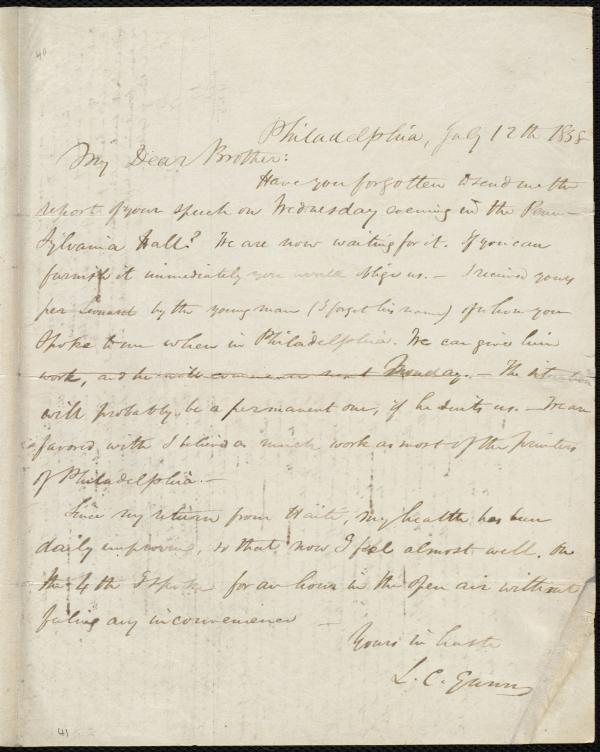 40
Philadelphia, July 12th 1838
My Dear Brother:
Have you forgotten to send me the
report of your speech on Wednesday evening in the Penn-
sylvania Hall? We are now waiting for it. If you can
furnish it immediately you would oblige us. — I received yours
per Leonard by the young man (I forget his name) of whom you
spoke to me when in Philadelphia. We can give him
work, and he will commence next Monday. — The situation
will probably be a permanent one, if he suits us. — We are
favored with I believe as much work as most of the printers
of Philadelphia. —
Since my return from Haiti, my health has been
daily improving, so that now I feel almost well. On
the 4th I spoke for an hour in the open air without
feeling any inconvenience —
Yours in haste
L. C. Gunn
41